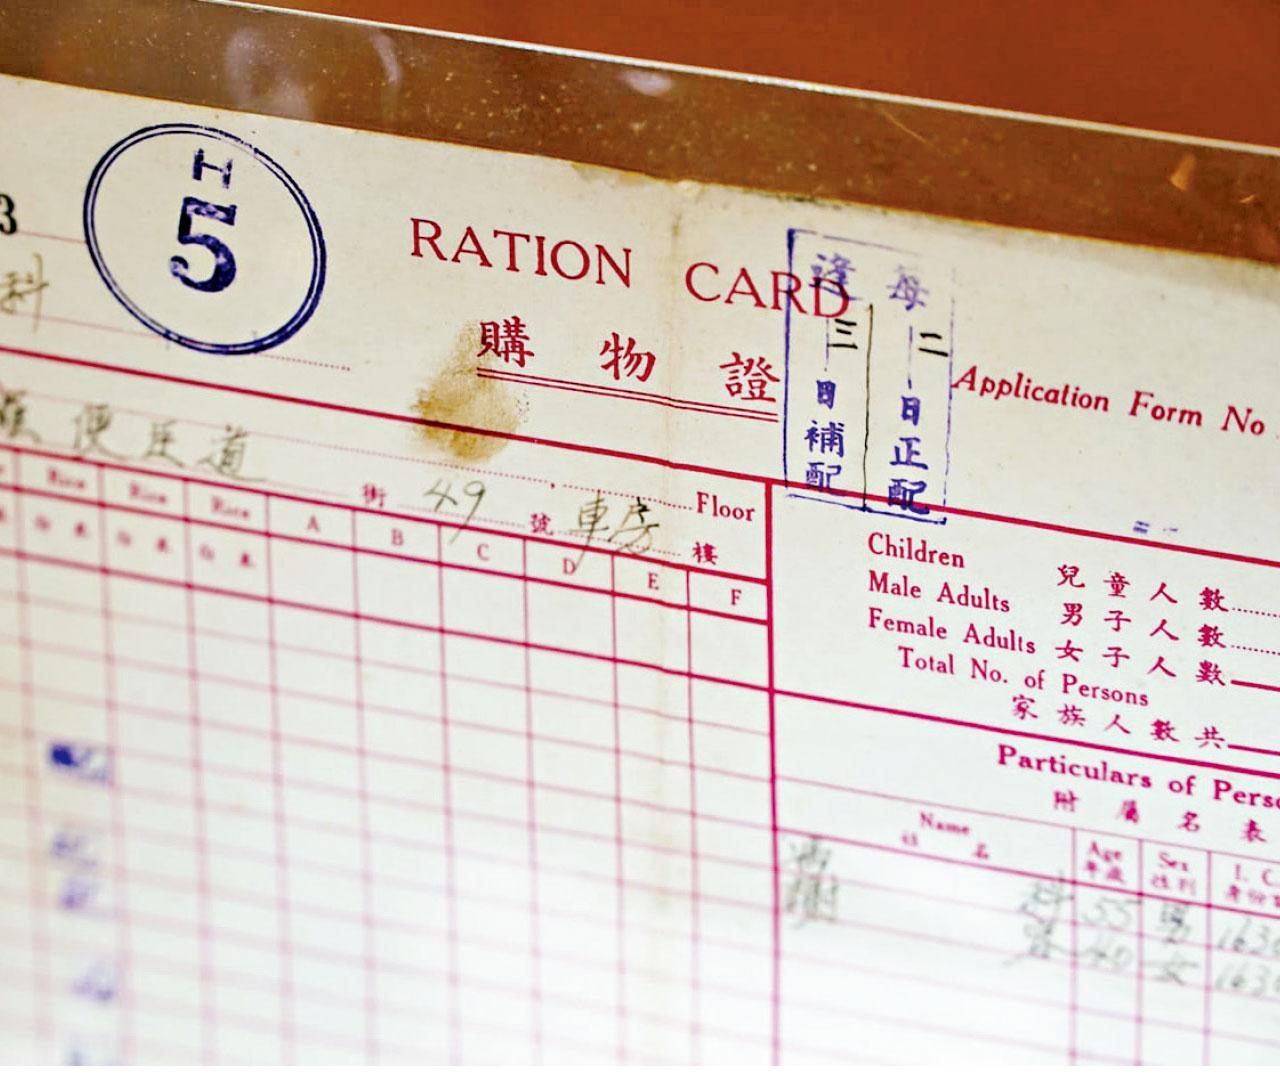 3
H
5
RATION CARD
購物證
逢三日補配
每二日正配
Application Form No
科
便臣道 街 49 號 車房 Floor 樓
Rice Rice Rice A B C D E F
白米 白米 白米
Children 兒童人數
Male Adults 男子人數
Female Adults 女子人數
Total No. of Persons
家族人數共
Particulars of Perso
附屬名表
Name Age Sex I. C.
姓名 年歲 性別 身份
科 55 男 163
40 女 163